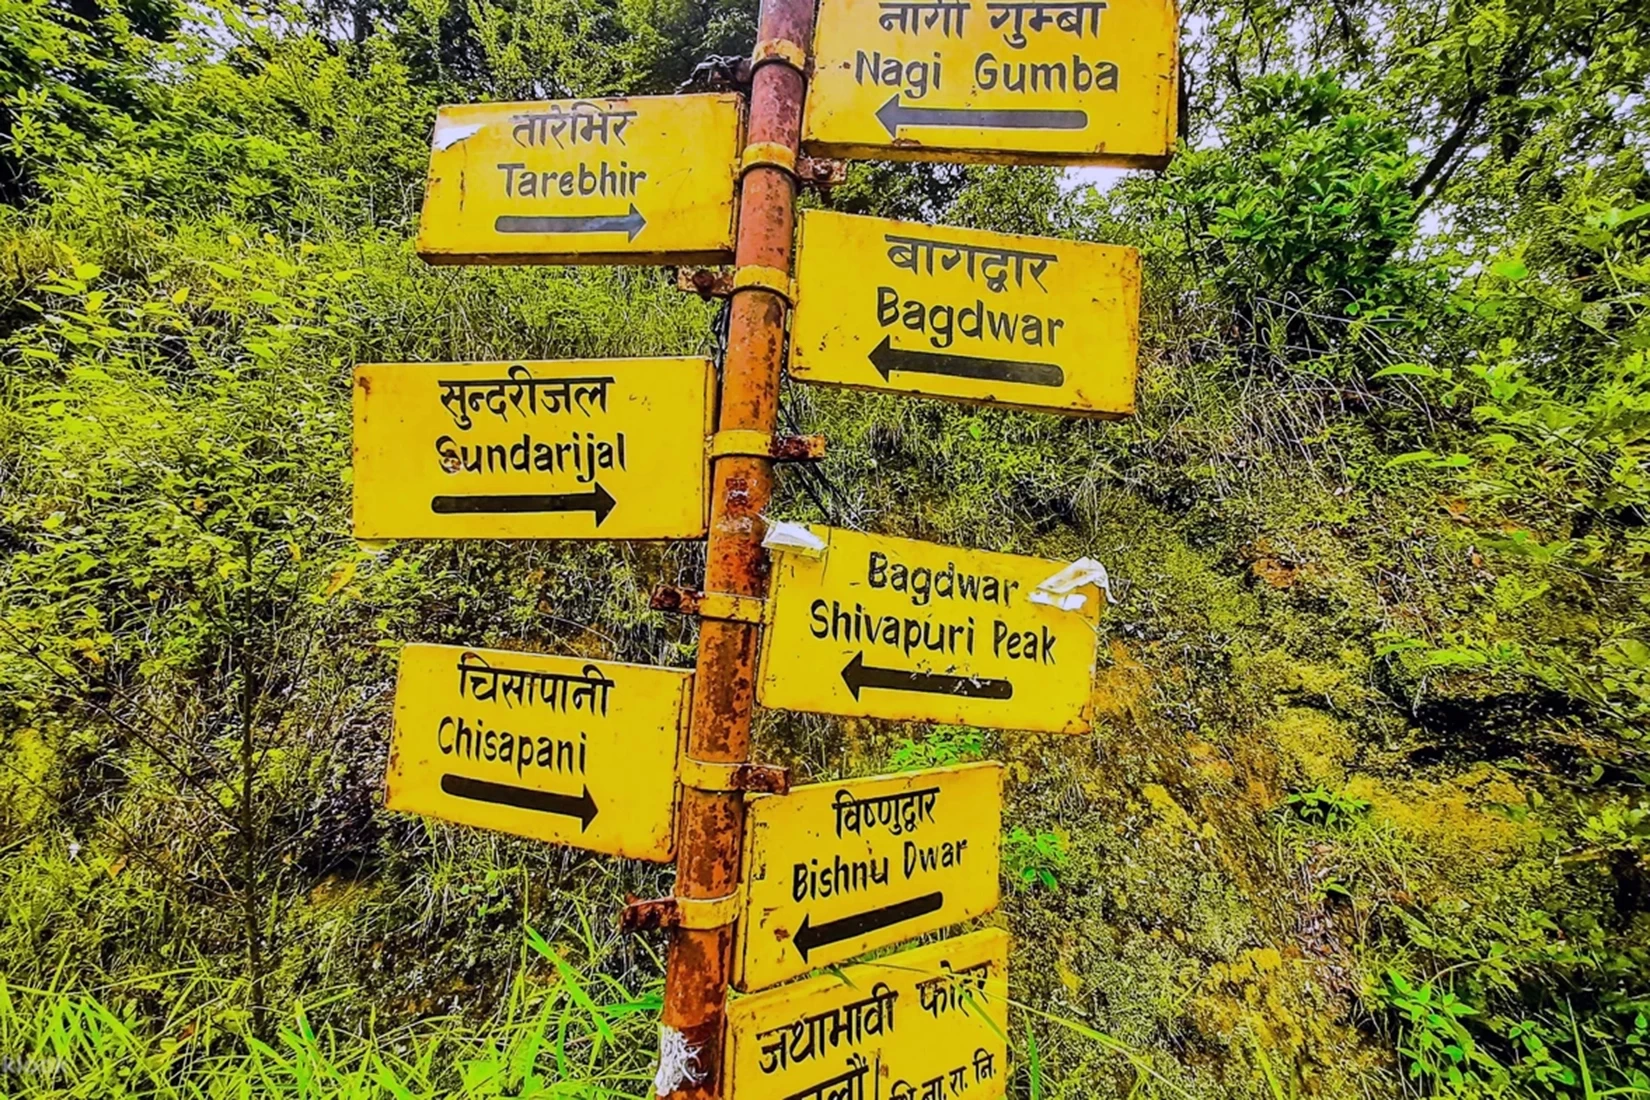 नागी गुम्बा
Nagi Gumba
तारेभिर
Tarebhir
बागद्वार
Bagdwar
सुन्दरीजल
Sundarijal
Bagdwar
Shivapuri Peak
चिसापानी
Chisapani
विष्णुद्वार
Bishnu Dwar
जथाभावी फोहर
शि.ना.रा.नि.